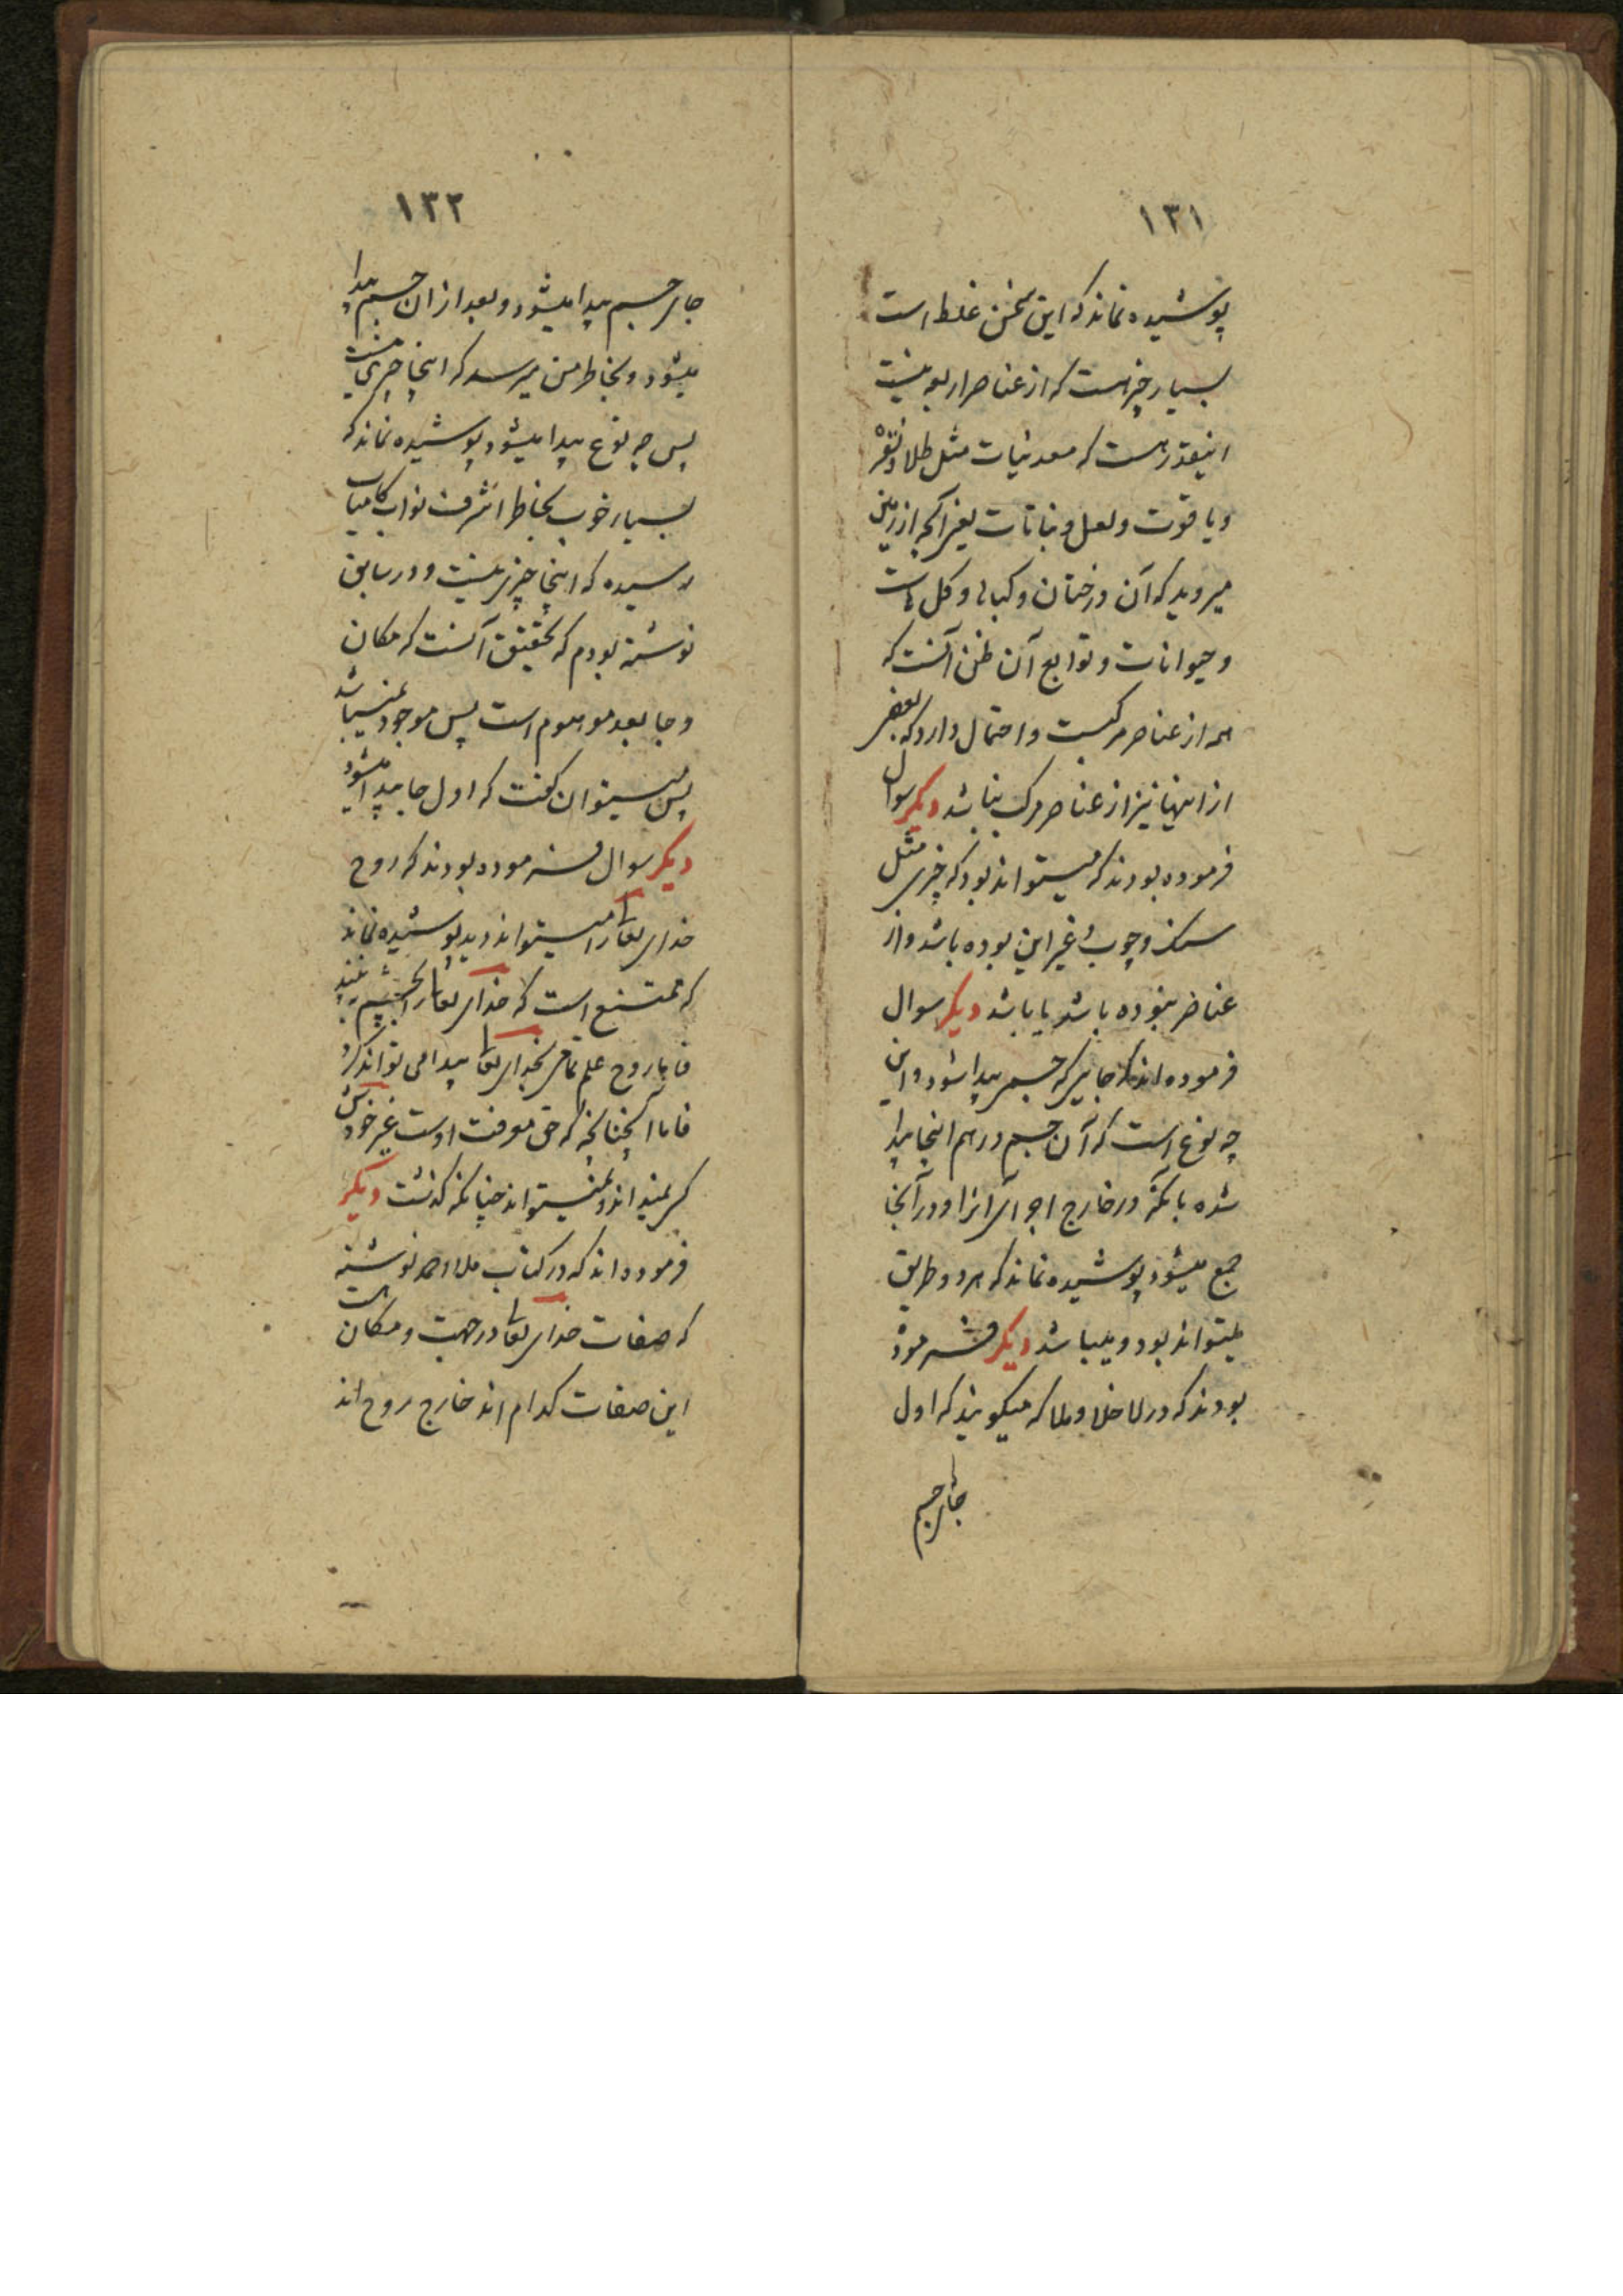 ۱۳۱
پوشیده نماند که این سخن غلط است
بسیار چیز هست که از عناصر اربعه نیست
اینقدر هست که معدنیات مثل طلا و نقره
و یاقوت و لعل و نباتات یعنی آنچه از زمین
میروید که آن درختان و کیاها و کل هاست
و حیوانات و توابع آن ظن آنست که
همه از عناصر مرکبست و احتمال دارد که بعضی
از اینها نیز از عناصر مرکب نباشد دیکر سوال
فرموده بودند که میتواند بود که چیزی مثل
سنک و چوب و غیر این بوده باشد و از
عناصر نبوده باشد یا باشد دیکر سوال
فرموده اند که جاییکه جسم پیدا شود و این
چه نوع است که آن جسم در هم اینجا پیدا
شده یا آنکه در خارج اجزای انرا و در آنجا
جمع میشود پوشیده نماند که هر دو طریق
میتواند بود و میباشد دیکر فرموده
بودند که در لا خلا و ملا که میکویند که اول
جای جسم
۱۳۲
جای جسم پیدا میشود و بعد از ان جسم پیدا
میشود و بخاطر من میرسد که اینجا چیزی نیست
پس چه نوع پیدا میشود پوشیده نماند که
بسیار خوب بخاطر اشرف نواب کامیاب
رسیده که اینجا چیزی نیست و در سابق
نوشته بودم که تحقیق آنست که مکان
و جا بعد موهوم است پس موجود نمیباشد
پس نمیتوان کفت که اول جا پیدا میشود
دیکر سوال فرموده بودند که روح
خدای تعالی را میتواند دید پوشیده نماند
که ممتنع است که خدای تعالی را بچشم به بیند
فاما روح علم تمامی بخدای تعالی پیدا می تواند کرد
فاما آنچنانچه که حق معرفت اوست غیر خودش
کسی نمیداند و نمیتواند چنانکه کذشت دیکر
فرموده اند که در کتاب ملا احمد نوشته است
که صفات خدای تعالی در جهت و مکان
این صفات کدام اند خارج روح اند